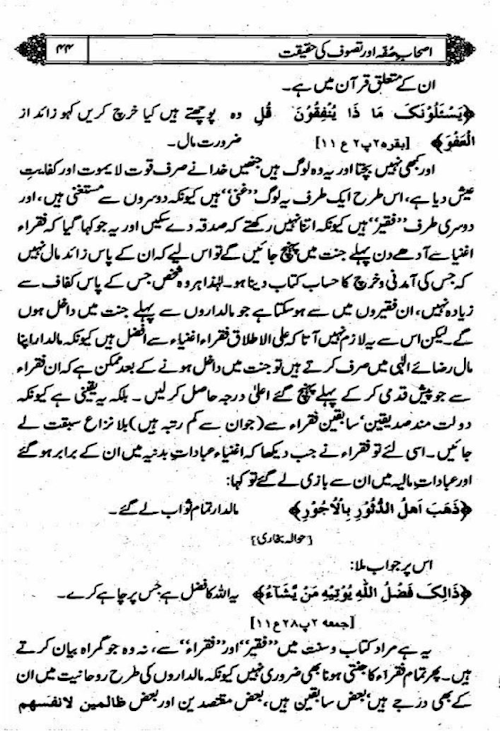 اصحابِ صُفّہ اور تصوف کی حقیقت
۴۴
ان کے متعلق قرآن میں ہے۔
﴿يَسْئَلُوْنَکَ مَا ذَا يُنْفِقُوْنَ قُلِ وہ پوچھتے ہیں کیا خرچ کریں کہو زائد از
الْعَفْوَ﴾ [بقرہ۲پ۲ع۱۱] ضرورت مال۔
اور کبھی نہیں بچتا اور یہ وہ لوگ ہیں جنھیں خدا نے صرف قوت لا یموت اور کفایتِ
عیش دیا ہے، اس طرح ایک طرف یہ لوگ ’’غنی‘‘ ہیں کیونکہ دوسروں سے مستغنی ہیں، اور
دوسری طرف ’’فقیر‘‘ ہیں کیونکہ اتنا نہیں رکھتے کہ صدقہ دے سکیں اور یہ جو کہا گیا کہ فقراء
اغنیا سے آدھے دن پہلے جنت میں پہنچ جائیں گے تو اس لیے کہ ان کے پاس زائد مال نہیں
کہ جس کی آمدنی و خرچ کا حساب کتاب دینا ہو۔ لہٰذا ہر وہ شخص جس کے پاس کفاف سے
زیادہ نہیں، ان فقیروں میں سے ہو سکتا ہے جو مالداروں سے پہلے جنت میں داخل ہوں
گے۔ لیکن اس سے یہ لازم نہیں آتا کہ علی الاطلاق فقراء اغنیاء سے افضل ہیں کیونکہ مالدار اپنا
مال رضائے الٰہی میں صرف کرتے ہیں تو جنت میں داخل ہونے کے بعد ممکن ہے کہ ان فقراء
سے جو پیش قدمی کر کے پہلے پہنچ گئے اعلیٰ درجہ حاصل کر لیں۔ بلکہ یہ یقینی ہے کیونکہ
دولت مند صدیقین، سابقین فقراء سے (جو ان سے کم رتبہ ہیں) بلا نزاع سبقت لے
جائیں۔ اسی لئے تو فقراء نے جب دیکھا کہ اغنیاء عبادات بدنیہ میں ان کے برابر ہو گئے
اور عبادات مالیہ میں ان سے بازی لے گئے تو کہا:
﴿ذَهَبَ اَهلُ الدُّثُوْرِ بِالْاُجُوْرِ﴾ مالدار تمام ثواب لے گئے۔
[حوالہ بخاری]
اس پر جواب ملا:
﴿ذَالِکَ فَضْلُ اللّٰهِ يُوْتِيْهِ مَنْ يَّشَآءُ﴾ یہ اللہ کا فضل ہے جس پر چاہے کرے۔
[جمعہ ۲پ۲۸ع۱۱]
یہ ہے مراد کتاب و سنت میں ’’فقیر‘‘ اور ’’فقراء‘‘ سے، نہ وہ جو گمراہ بیان کرتے
ہیں۔ پھر تمام فقراء کا جنتی ہونا بھی ضروری نہیں کیونکہ مالداروں کی طرح روحانیت میں ان
کے بھی درجے ہیں، بعض سابقین ہیں، بعض مقتصدین اور بعض ظالمین لانفسهم